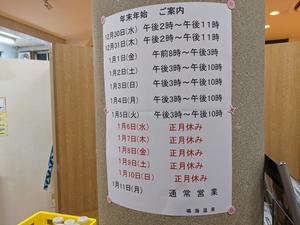 年末年始 ご案内
12月30日(水) 午後2時～午後11時
12月31日(木) 午後2時～午後11時
1月1日(金) 午前8時～午後3時
1月2日(土) 午後3時～午後10時
1月3日(日) 午後3時～午後10時
1月4日(月) 午後3時～午後10時
1月5日(火) 午後3時～午後10時
1月6日(水) 正月休み
1月7日(木) 正月休み
1月8日(金) 正月休み
1月9日(土) 正月休み
1月10日(日) 正月休み
1月11日(月) 通常営業
鳴海温泉